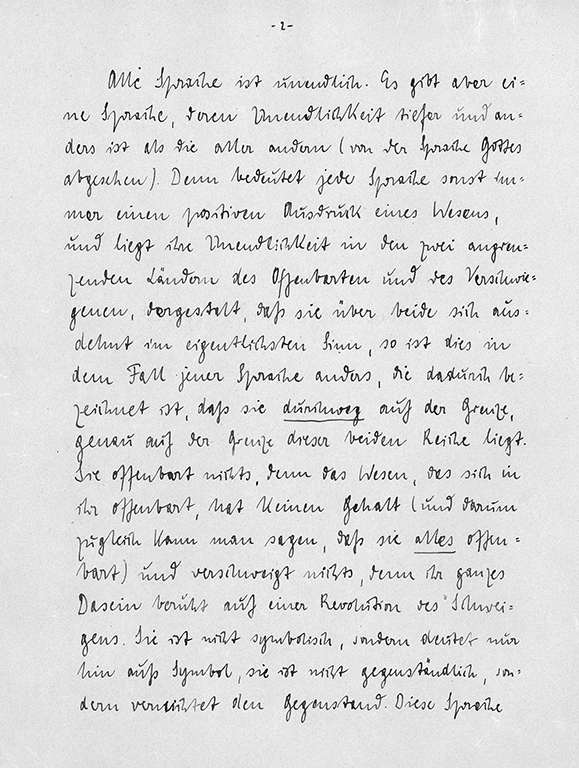 - 2 -
Alle Sprache ist unendlich. Es gibt aber ei=
ne Sprache, deren Unendlichkeit tiefer und an=
ders ist als die aller andern (von der Sprache Gottes
abgesehen). Denn bedeutet jede Sprache sonst im=
mer einen positiven Ausdruck eines Wesens,
und liegt ihre Unendlichkeit in den zwei angren=
zenden Ländern des Offenbarten und des Verschwie=
genen, dergestalt, daß sie über beide sich aus=
dehnt im eigentlichsten Sinn, so ist dies in
dem Fall jener Sprache anders, die dadurch be=
zeichnet ist, daß sie durchweg auf der Grenze,
genau auf der Grenze dieser beiden Reiche liegt.
Sie offenbart nichts, denn das Wesen, das sich in
ihr offenbart, hat keinen Gehalt (und darum
zugleich kann man sagen, daß sie alles offen=
bart) und verschweigt nichts, denn ihr ganzes
Dasein beruht auf einer Revolution des Schwei-
gens. Sie ist nicht symbolisch, sondern deutet nur
hin aufs Symbol, sie ist nicht gegenständlich, son-
dern vernichtet den Gegenstand. Diese Sprache